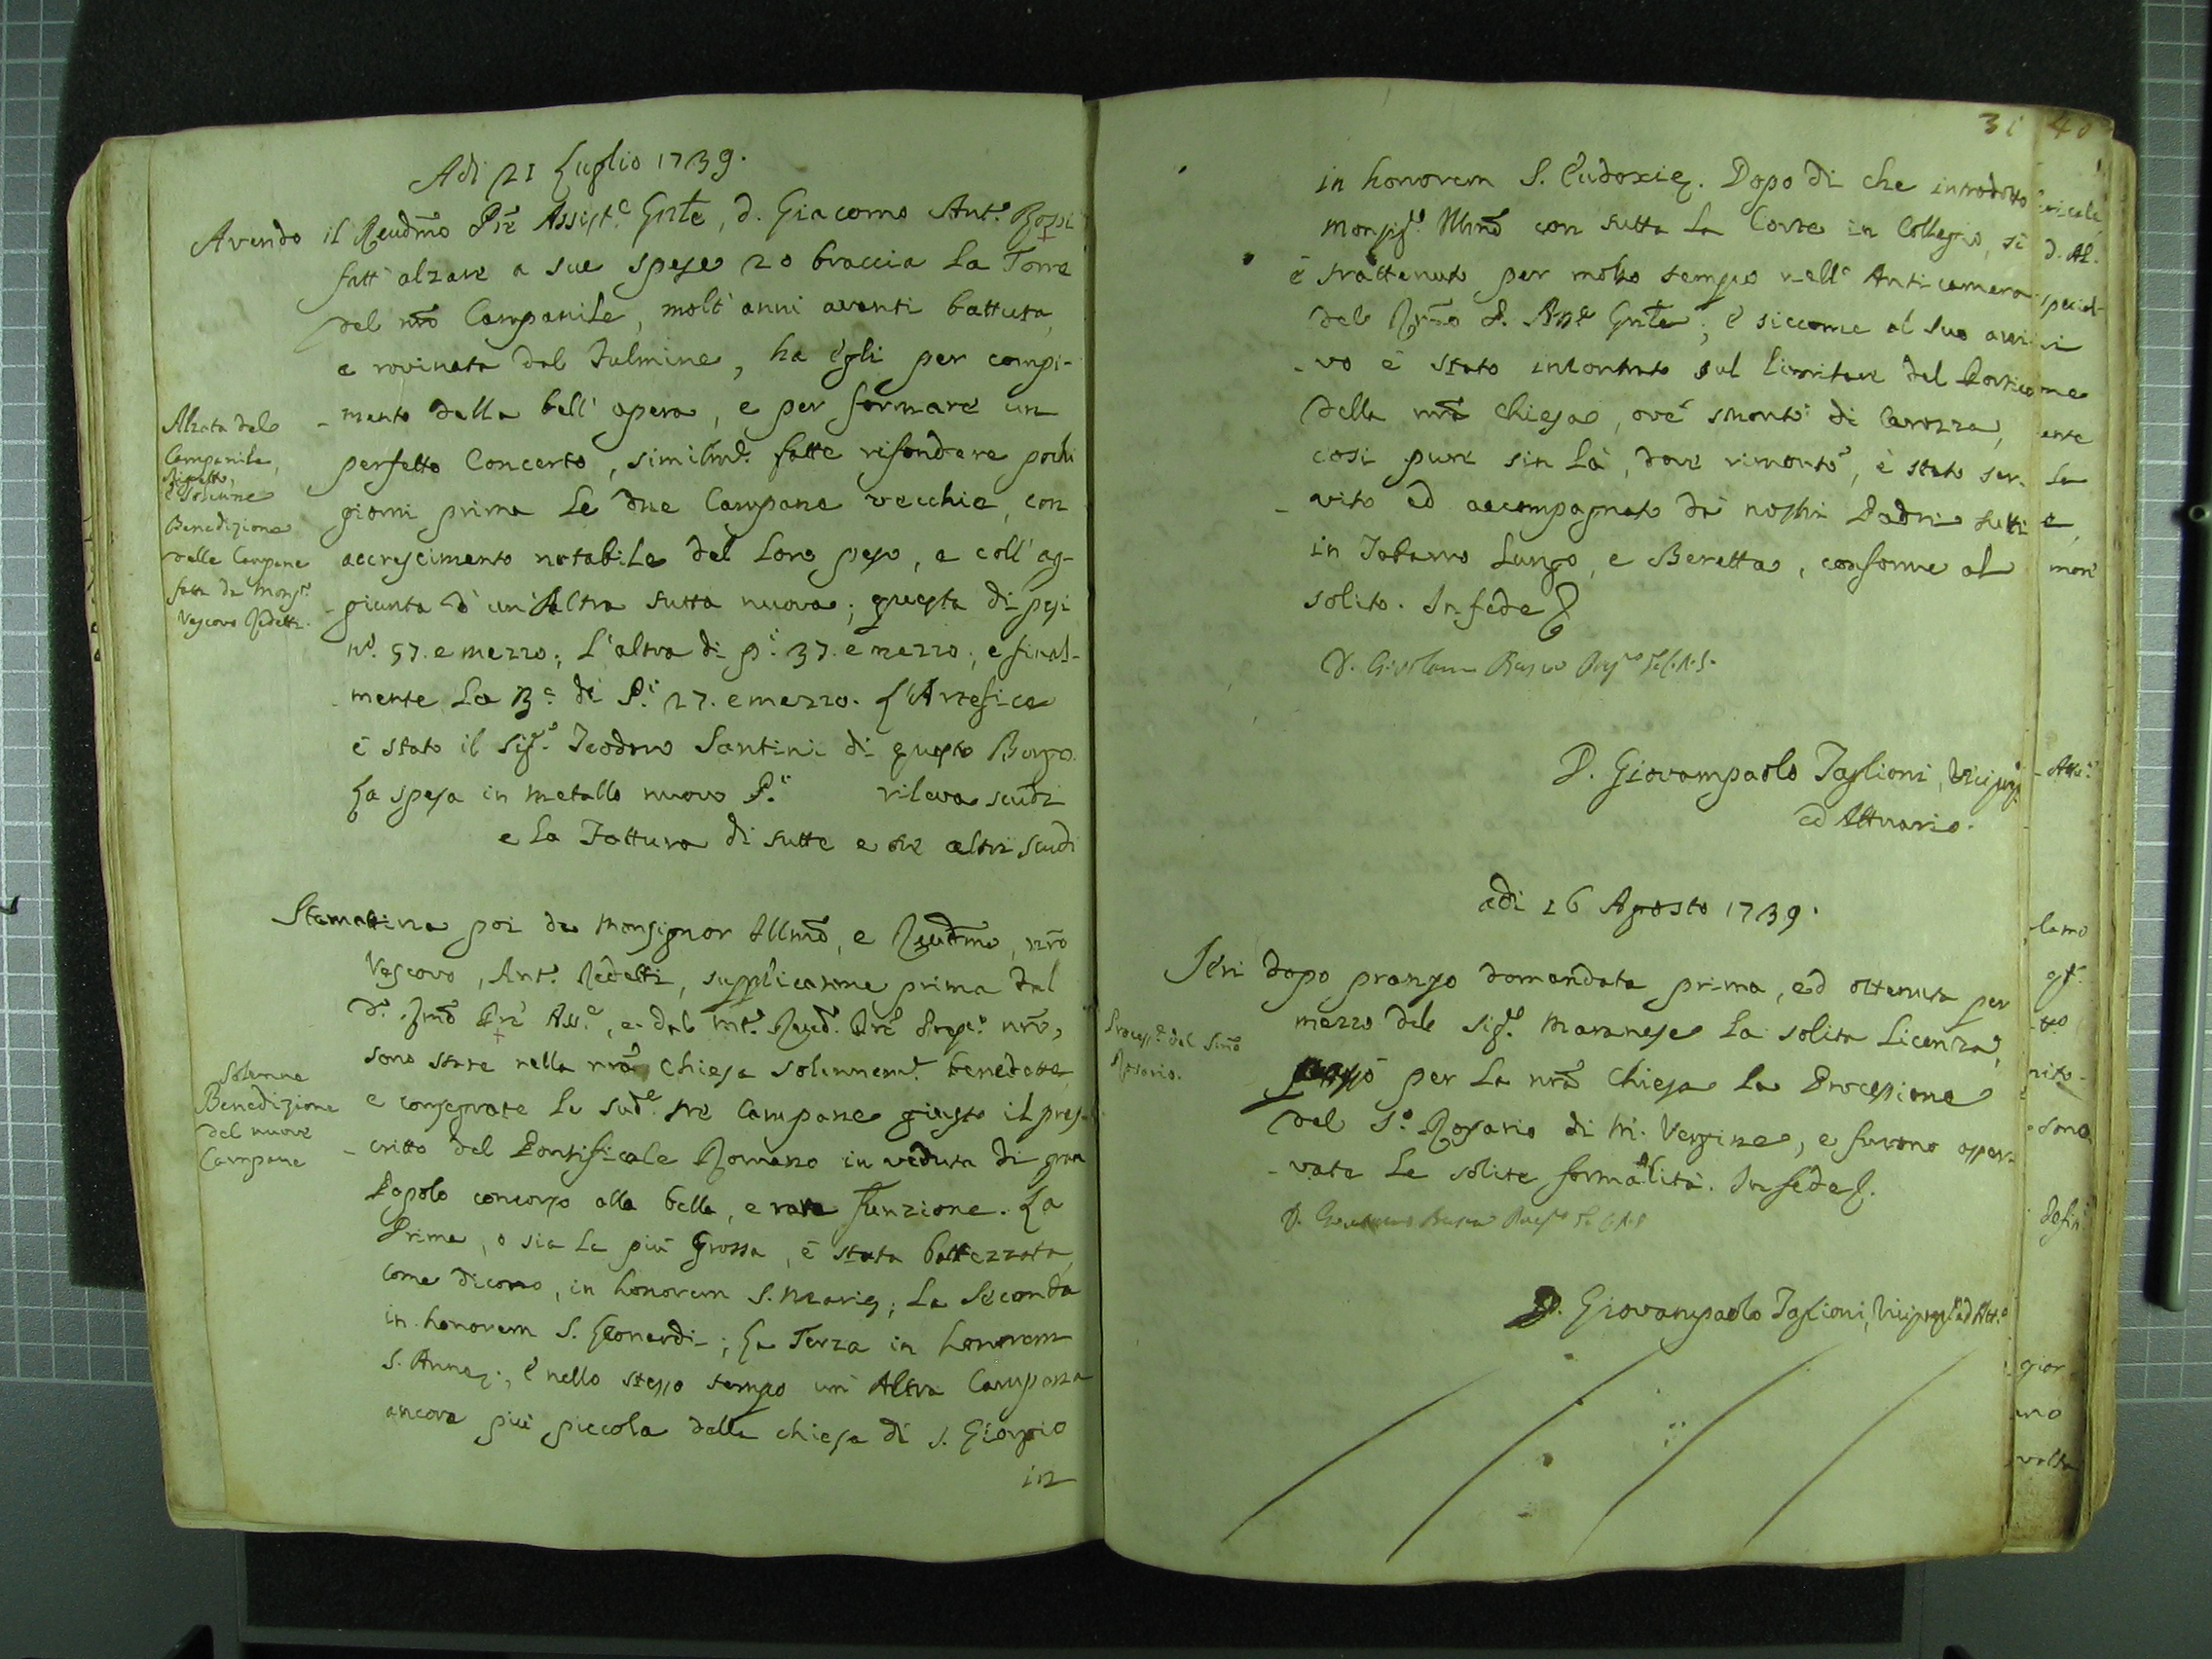 Adi 21 Luglio 1739.
Avendo il Reudmo Pre Assist.e Gnle, d. Giacomo Ant.o Rossi
fatt' alzare a sue spese 20 braccia la Torre
del nro Campanile, molt' anni avanti battuta,
e rovinata dal Fulmine, ha egli per compi-
-mento della bell' opera, e per formare un
perfetto Concerto, similmte. fatte rifondere pochi
giorni prima le due Campane vecchie, con
accrescimento notabile del loro peso, e coll' ag-
-giunta d' un' Altra tutta nuova; questa di pesi
n.o 57. e mezzo; L'altra di p.i 37. e mezzo; e final-
-mente La 3.a di P.i 27. e mezzo. L'Artefice
è stato il Sig.r Teodoro Santini di questo Borgo.
La spesa in metallo nuovo P.i rileva scudi
e la Fattura di tutte e tre altri scudi
Alzata del
Campanile,
e Solenne
Benedizione
delle Campane
fatta da Mons.r
Vescovo Redetti.
Stamattina poi da Monsignor Illmo, e Reudmo, nro
Vescovo, Ant.o Redetti, supplicatone prima dal
d.o Rmo Pre Ass.e, e dal mt.o Reud. Pre Prep.o nro,
sono state nella nra Chiesa solennem.e benedette,
e consegrate le sud.e tre Campane giusto il pres-
-critto del Pontificale Romano in veduta di gran
Popolo concorso alla bella, e rara Funzione. La
Prima, o sia la più Grossa, è stata battezzata,
come dicono, in honorem S. Marie; La Seconda
in honorem S. Leonardi; La Terza in honorem
S. Anne; e nello stesso tempo un' Altra Campana
ancora più piccola della chiesa di S. Giorgio
in
Solenne
Benedizione
del nuove
Campane
31 40
in honorem S. Eudoxie. Dopo di che introdotto
Monsig.r Illmo con tutta la Corte in Collegio, si
è trattenuto per molto tempo nell' Anticamera
del Rmo P. Ass.e Gnle; e siccome al suo arri-
-vo è stato incontrato sul limitare del Portico
della nra Chiesa, ove smontò di Carozza,
così pure sin là, dove rimontò, è stato ser-
-vito ed accompagnato da' nostri Padri tutti
in Tabarro lungo, e Beretta, conforme al
solito. In fede
D. Girolamo
D. Giovampaolo Taglioni, Viciprep.
ed Attuario.
adi 16 Agosto 1739.
Ieri dopo pranzo domandata prima, ed ottenuta per
mezzo del Sig.r Maranese la solita Licenza,
passò per la nra Chiesa la Processione
del S.o Rosario di M. Vergine, e furono osser-
-vate le solite formalità. In fede.
Process.e del Smo
Rosario.
D. Giovampaolo Taglioni, Viciprep. ed Att.o